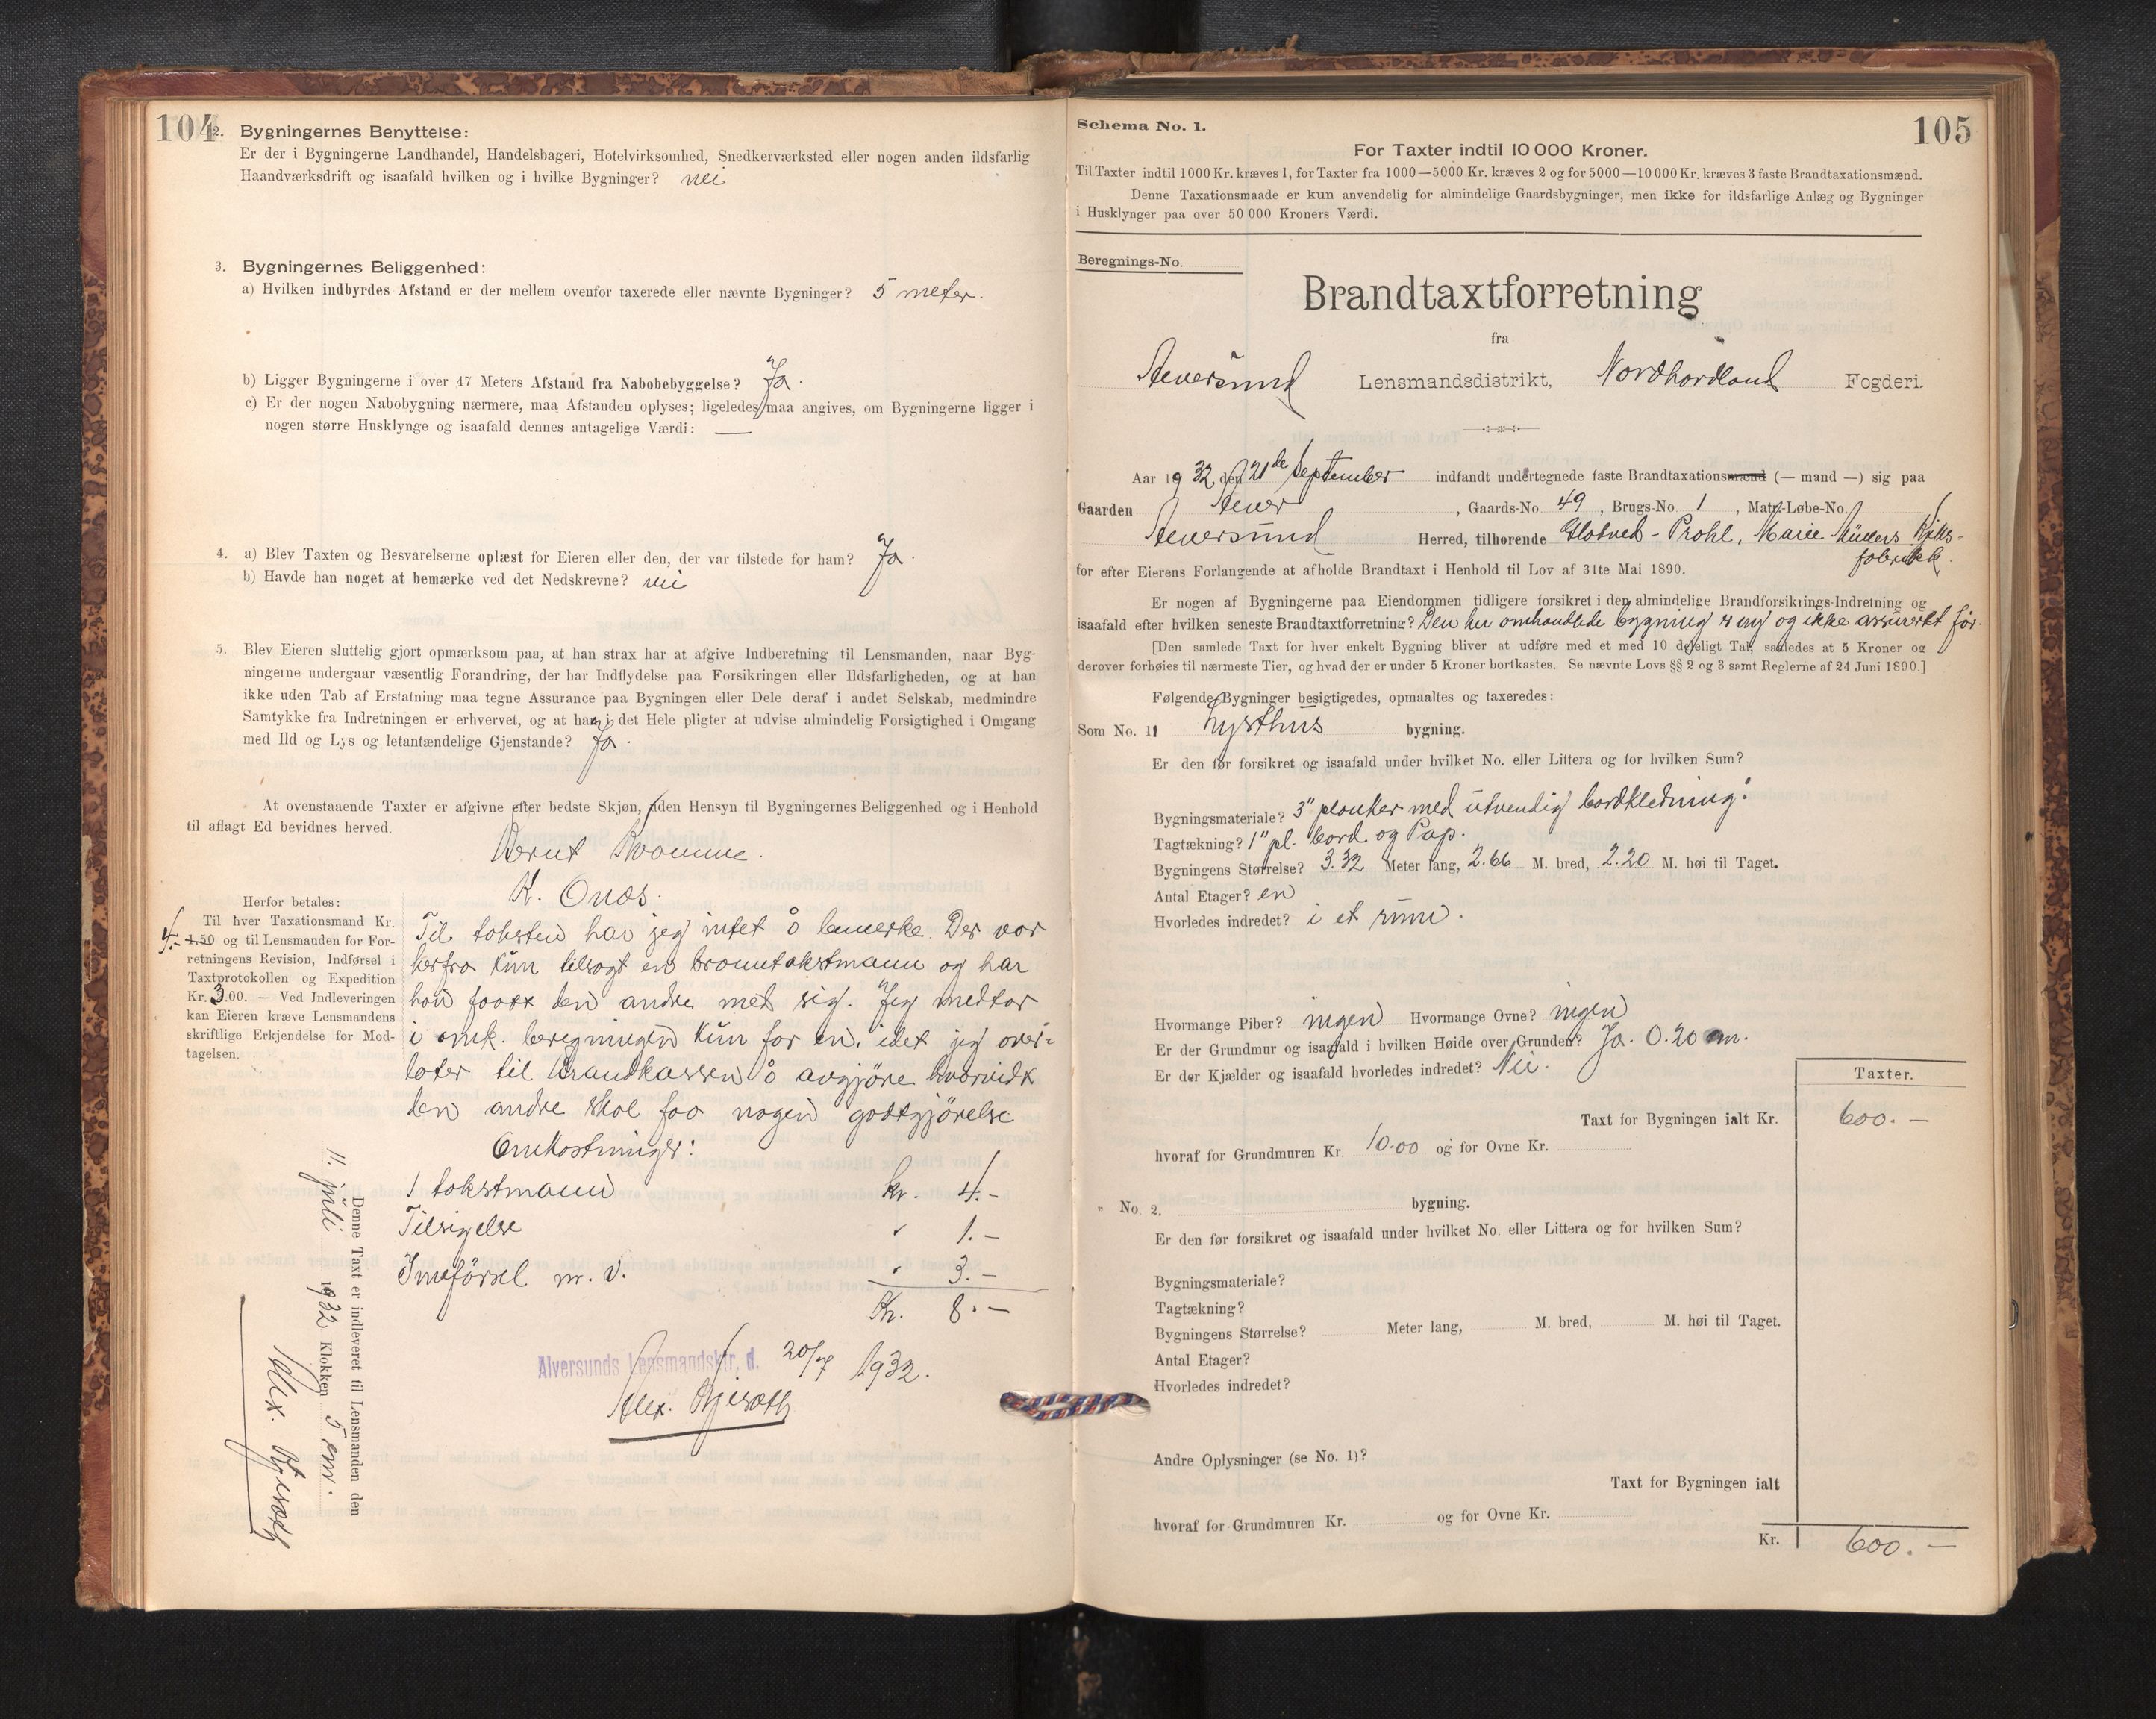 104
2. Bygningernes Benyttelse:
Er der i Bygningerne Landhandel, Handelsbageri, Hotelvirksomhed, Snedkerværksted eller nogen anden ildsfarlig
Haandværksdrift og isaafald hvilken og i hvilke Bygninger? nei
3. Bygningernes Beliggenhed:
a) Hvilken indbyrdes Afstand er der mellem ovenfor taxerede eller nævnte Bygninger? 5 meter.
b) Ligger Bygningerne i over 47 Meters Afstand fra Nabobebyggelse? Ja.
c) Er der nogen Nabobygning nærmere, maa Afstanden oplyses; ligeledes maa angives, om Bygningerne ligger i
nogen større Husklynge og isaafald dennes antagelige Værdi: —
4. a) Blev Taxten og Besvarelserne oplæst for Eieren eller den, der var tilstede for ham? Ja.
b) Havde han noget at bemærke ved det Nedskrevne? nei
5. Blev Eieren sluttelig gjort opmærksom paa, at han strax har at afgive Indberetning til Lensmanden, naar Byg-
ningerne undergaar væsentlig Forandring, der har Indflydelse paa Forsikringen eller Ildsfarligheden, og at han
ikke uden Tab af Erstatning maa tegne Assurance paa Bygningen eller Dele deraf i andet Selskab, medmindre
Samtykke fra Indretningen er erhvervet, og at han i det Hele pligter at udvise almindelig Forsigtighed i Omgang
med Ild og Lys og letantændelige Gjenstande? Ja.
At ovenstaaende Taxter er afgivne efter bedste Skjøn, uden Hensyn til Bygningernes Beliggenhed og i Henhold
til aflagt Ed bevidnes herved.
Bernt Kvamme.
K. Onæs.
Herfor betales:
Til hver Taxationsmand Kr.
4.- 1.50 og til Lensmanden for For-
retningens Revision, Indførsel i
Taxtprotokollen og Expedition
Kr. 3.00. — Ved Indleveringen
kan Eieren kræve Lensmandens
skriftlige Erkjendelse for Mod-
tagelsen.
Til taksten har jeg intet å bemerke. Der var
herfra kun tilsagt en branntakstmann og har
han faatt den andre med sig. Jeg medtar
i omk. beregningen kun for en, idet jeg over-
later til Brandkassen å avgjøre hvorvidt
den andre skal faa nogen godtgjørelse
Omkostninger:
1 takstmann kr. 4.-
Tilsigelse " 1.-
Innførsel m. v. " 3.-
Kr. 8.-
Alversunds Lensmandsktr. d. 20/7 1932.
Alex. Bjerøth
Denne Taxt er indleveret til Lensmanden den
11. juli 1932 Klokken 5 em.
Alex. Bjerøth
105
Schema No. 1.
For Taxter indtil 10 000 Kroner.
Til Taxter indtil 1000 Kr. kræves 1, for Taxter fra 1000—5000 Kr. kræves 2 og for 5000—10 000 Kr. kræves 3 faste Brandtaxationsmænd.
Denne Taxationsmaade er kun anvendelig for almindelige Gaardsbygninger, men ikke for ildsfarlige Anlæg og Bygninger
i Husklynger paa over 50 000 Kroners Værdi.
Beregnings-No.
Brandtaxtforretning
fra
Alversund Lensmandsdistrikt, Nordhordland Fogderi.
Aar 1932, den 21de September indfandt undertegnede faste Brandtaxationsmænd (— mand —) sig paa
Gaarden Alver, Gaards-No 49, Brugs-No. 1, Matr.-Løbe-No.
Alversund Herred, tilhørende Prohl, Marie Müllers Kjeks-
fabrikk
for efter Eierens Forlangende at afholde Brandtaxt i Henhold til Lov af 31te Mai 1890.
Er nogen af Bygningerne paa Eiendommen tidligere forsikret i den almindelige Brandforsikrings-Indretning og
isaafald efter hvilken seneste Brandtaxtforretning? Den her omhandlede bygning er ny og ikke assurert før.
[Den samlede Taxt for hver enkelt Bygning bliver at udføre med et med 10 deleligt Tal, saaledes at 5 Kroner og
derover forhøies til nærmeste Tier, og hvad der er under 5 Kroner bortkastes. Se nævnte Lovs §§ 2 og 3 samt Reglerne af 24 Juni 1890.]
Følgende Bygninger besigtigedes, opmaaltes og taxeredes:
Som No. 1 Lysthus bygning.
Er den før forsikret og isaafald under hvilket No. eller Littera og for hvilken Sum?
Bygningsmateriale? 3" planker med utvendig bordkledning.
Tagtækning? 1" pl. bord og Pap.
Bygningens Størrelse? 3.32 Meter lang, 2.66 M. bred, 2.20 M. høi til Taget.
Antal Etager? en
Hvorledes indredet? i et rum.
Hvormange Piber? ingen Hvormange Ovne? ingen
Er der Grundmur og isaafald i hvilken Høide over Grunden? Ja. 0.20 m.
Er der Kjælder og isaafald hvorledes indredet? Nei.
Taxter.
Taxt for Bygningen ialt Kr. 600.—
hvoraf for Grundmuren Kr. 10.00 og for Ovne Kr.
" No. 2. bygning.
Er den før forsikret og isaafald under hvilket No. eller Littera og for hvilken Sum?
Bygningsmateriale?
Tagtækning?
Bygningens Størrelse? Meter lang, M. bred, M. høi til Taget.
Antal Etager?
Hvorledes indredet?
Andre Oplysninger (se No. 1)?
Taxt for Bygningen ialt
hvoraf for Grundmuren Kr. og for Ovne Kr.
Kr. 600.—